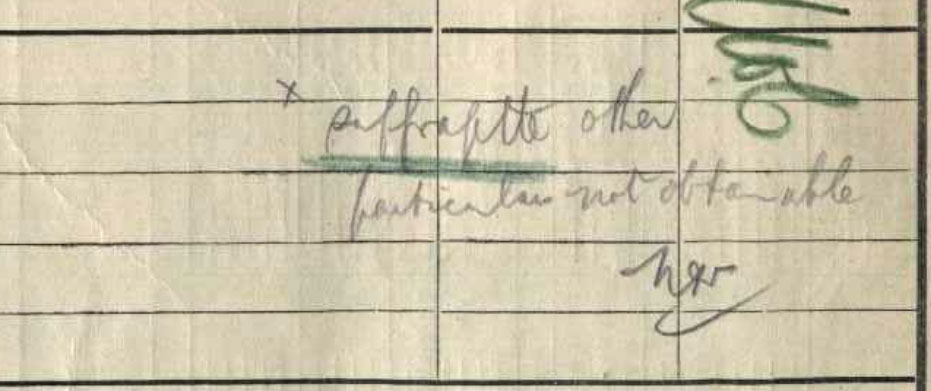 x suffragette other
particulars not obtainable